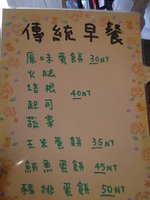 傳統早餐
原味蛋餅 30NT
火腿
培根 40NT
起司
蔬菜
玉米蛋餅 35NT
鮪魚蛋餅 45NT
豬排蛋餅 50NT